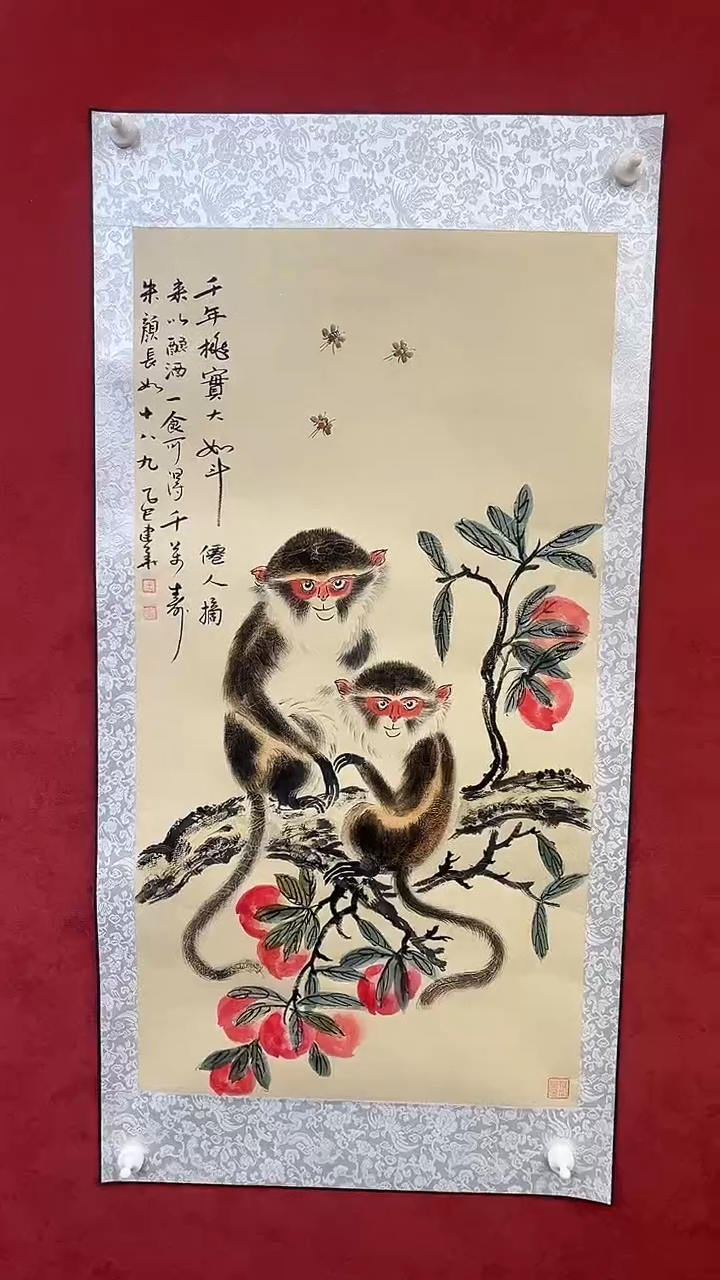 千年桃實大如斗 僊人摘
来以釀酒一食可得千萬壽
朱顏長如十八九 乙巳建華